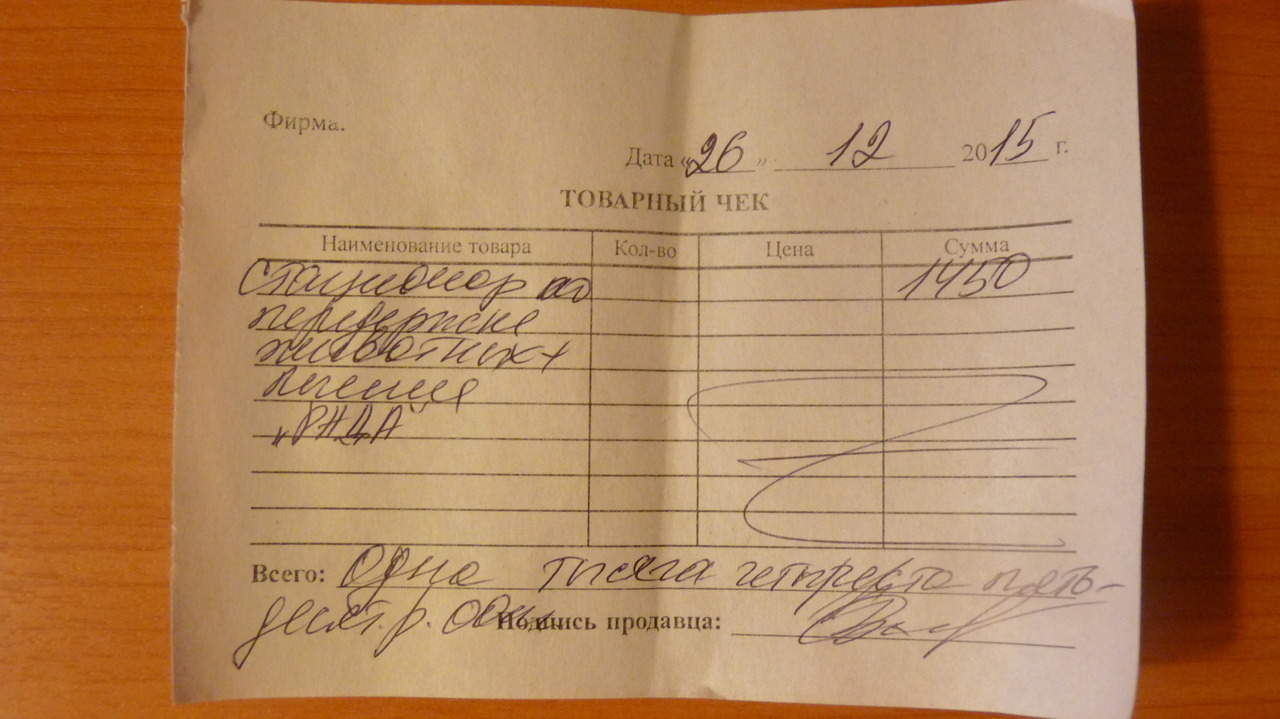 Фирма.
Дата «26» 12 2015 г.
ТОВАРНЫЙ ЧЕК
Наименование товара Кол-во Цена Сумма
Стационар по 1450
передержке
животных +
лечение
„РНДА"
Всего: Одна тысяча четыреста пять-
десят р. 00 Подпись продавца: